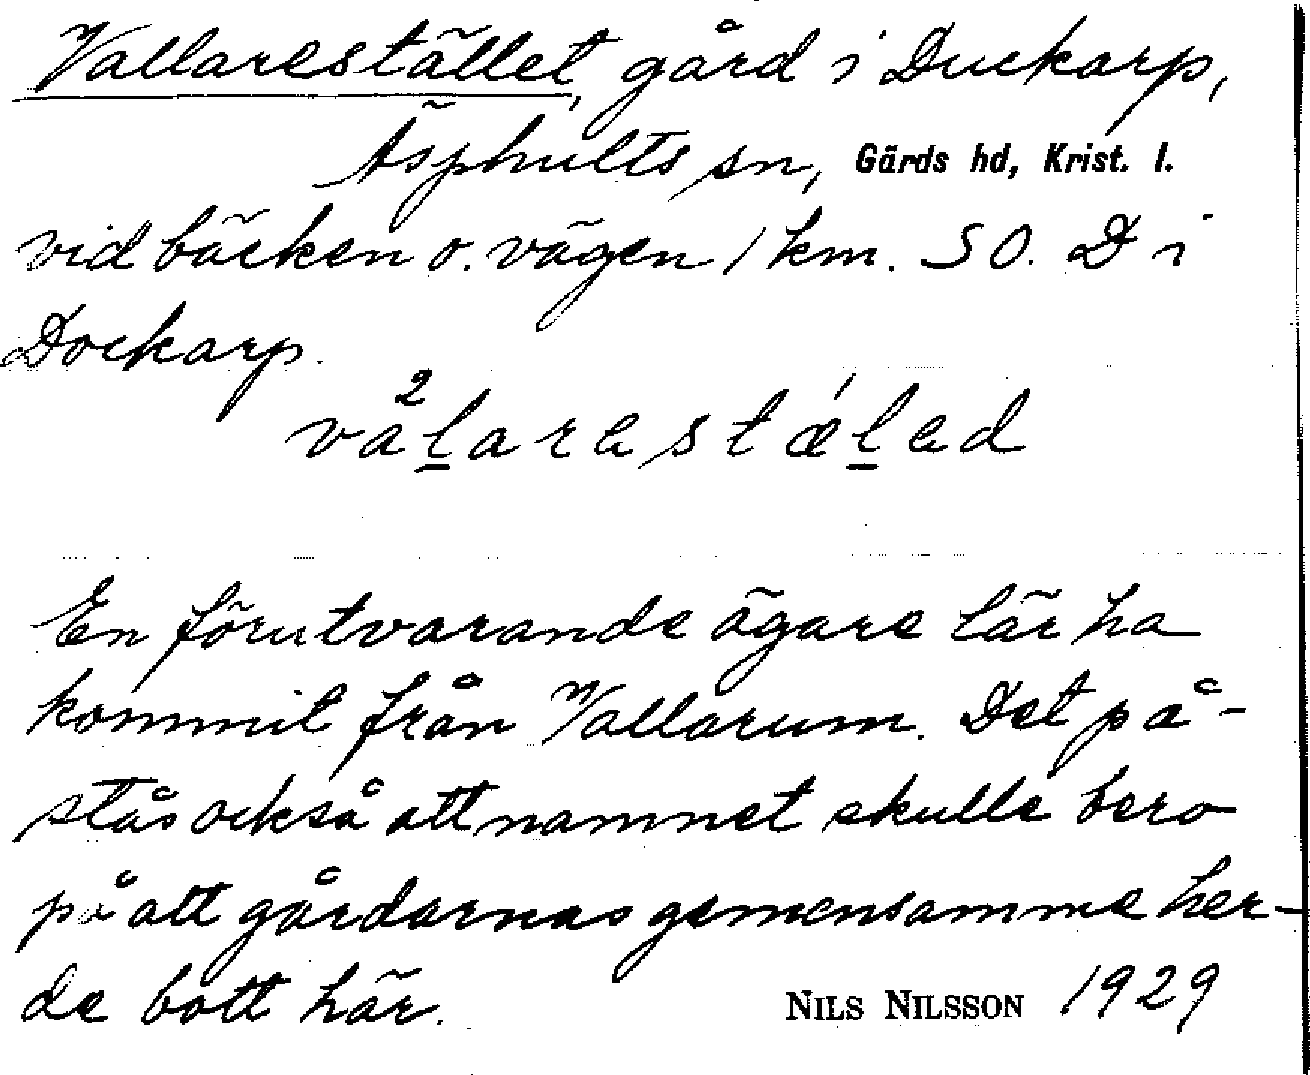 Vallarestället, gård i Duckarp,
Äsphults sn, Gärds hd, Krist. l.
vid bäcken o. vägen 1 km. SO. D i
Dockarp.
va²l̲arestǽl̲ed
En förutvarande ägare lär ha
kommit från Vallarum. Det på-
stås också att namnet skulle bero
på att gårdarnas gemensamme her-
de bott här. NILS NILSSON 1929